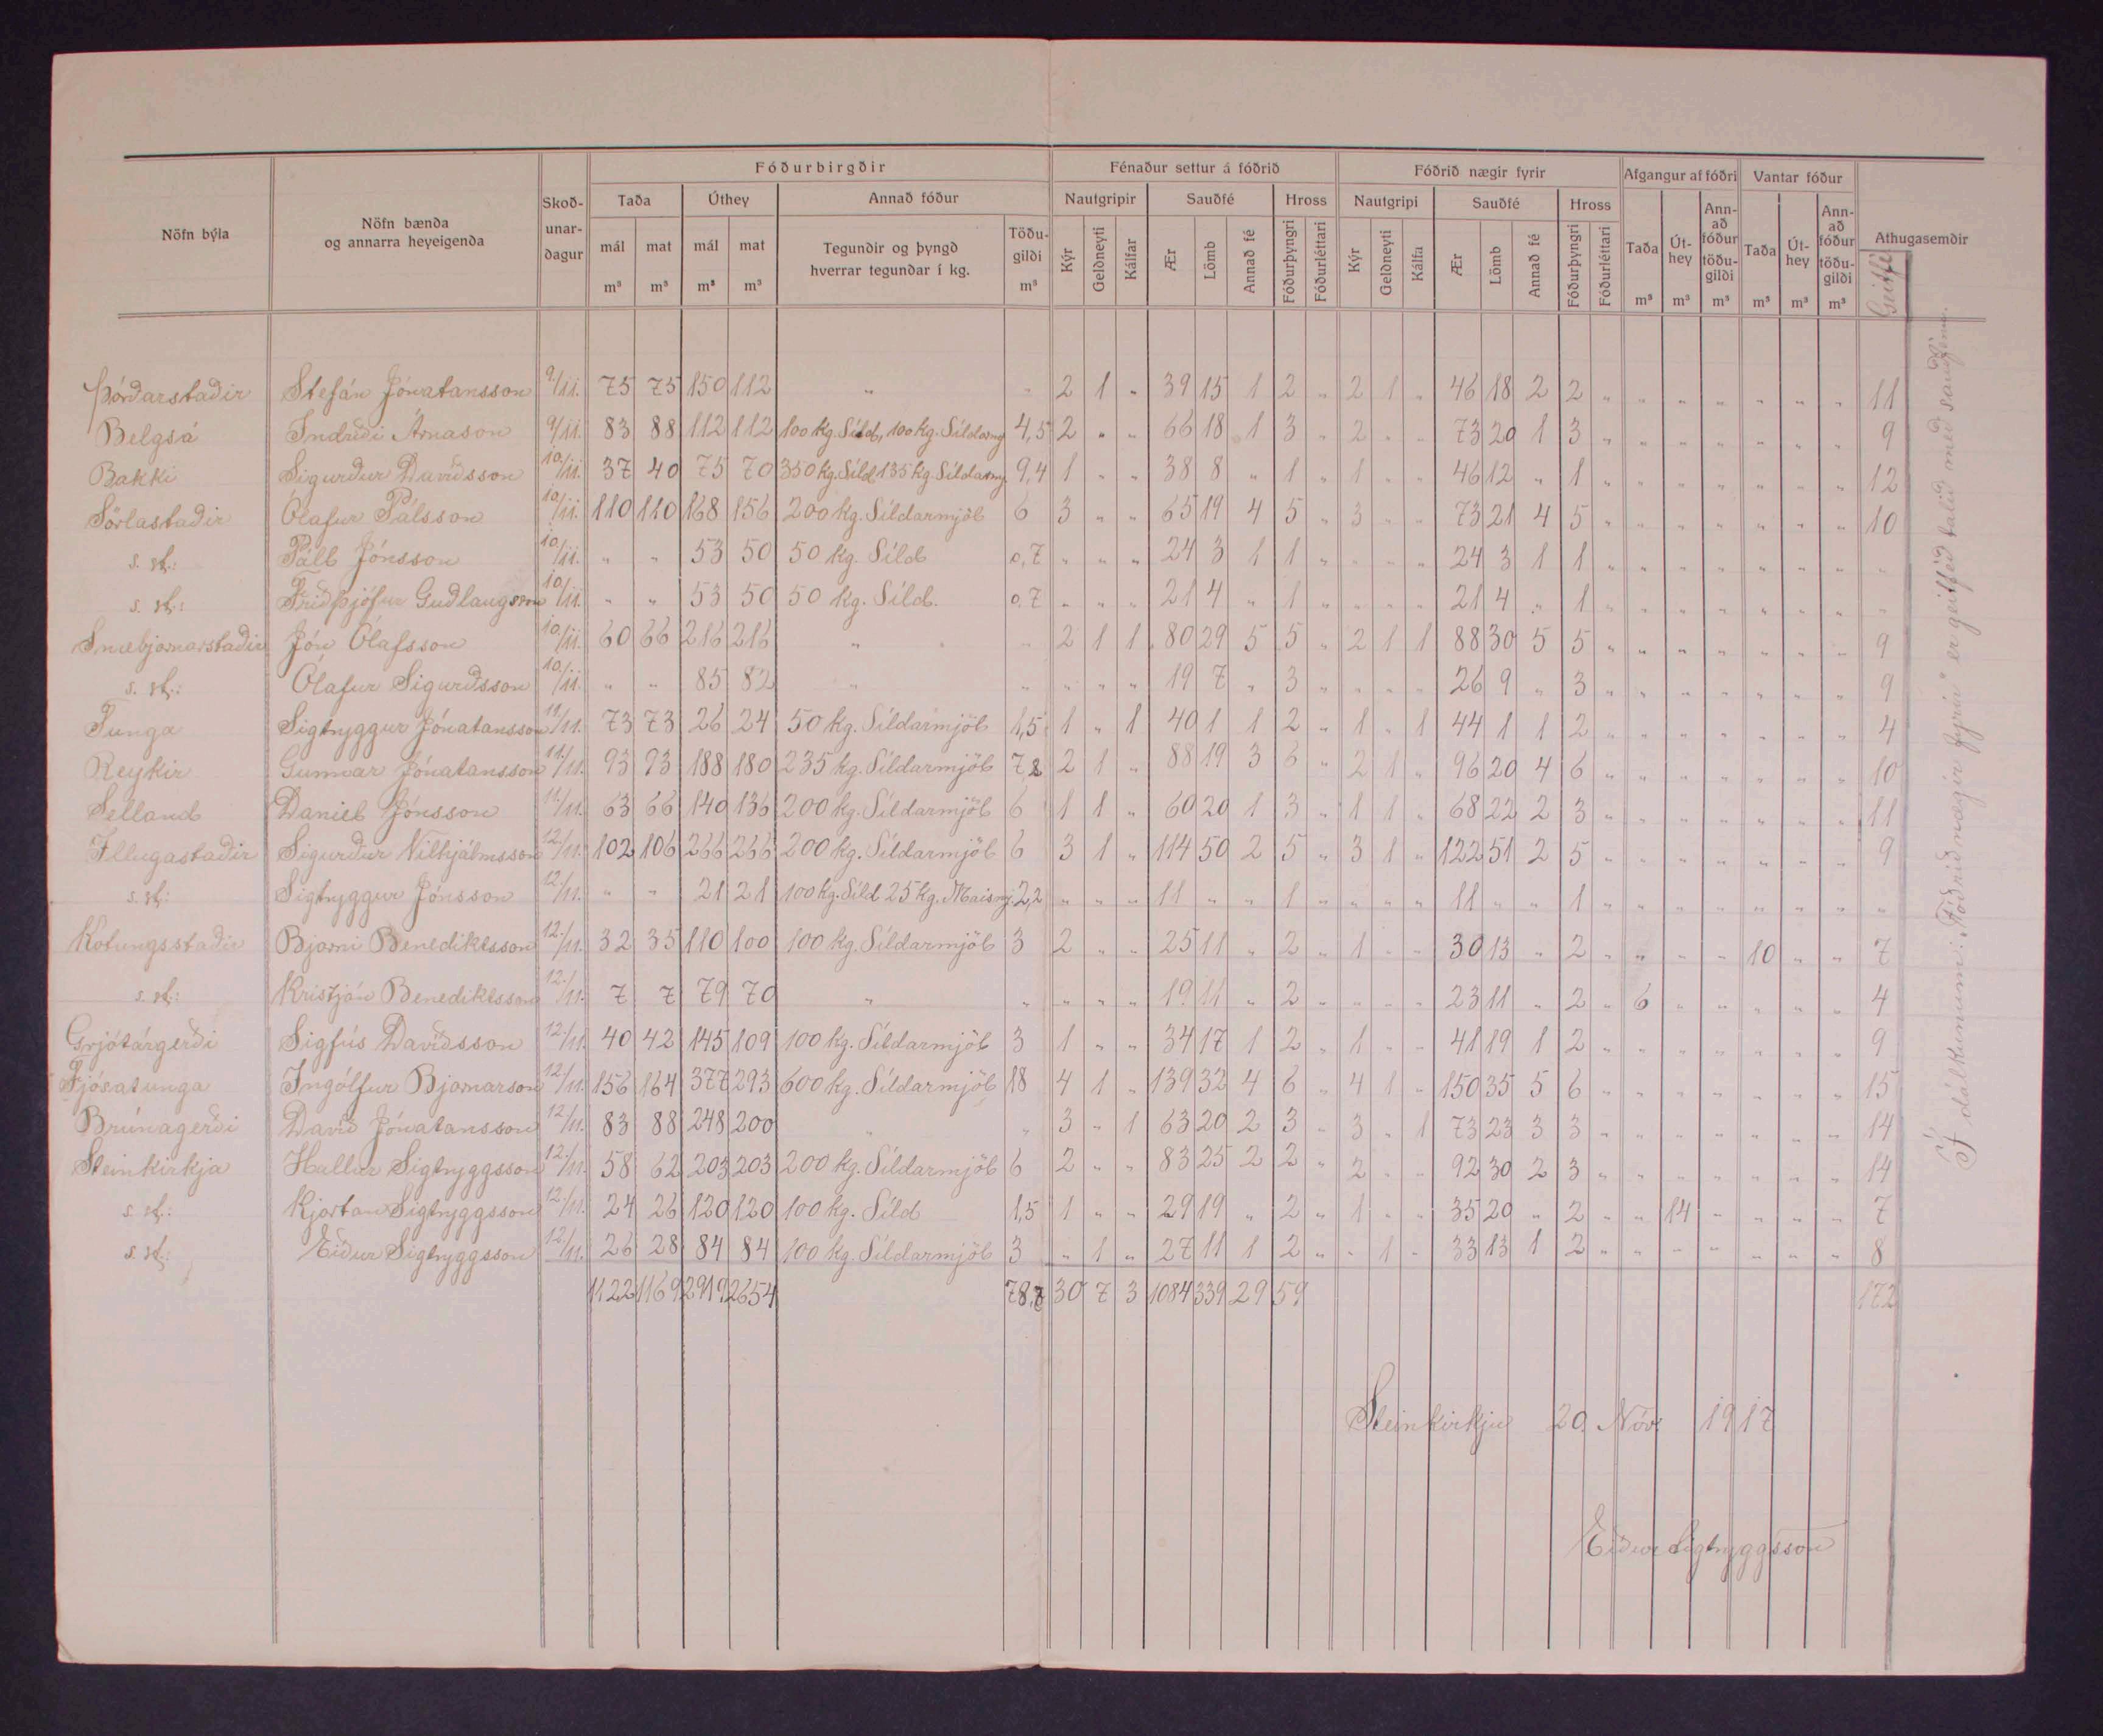 Nöfn býla | Nöfn bænda og annarra heyeigenda | Skoð-unar-dagur | Fóðurbirgðir | Fénaður settur á fóðrið | Fóðrið nægir fyrir | Afgangur af fóðri | Vantar fóður | Athugasemdir
Taða | Úthey | Annað fóður | Nautgripir | Sauðfé | Hross | Nautgripi | Sauðfé | Hross | Taða m³ | Út-hey m³ | Ann-að fóður töðu-gildi m³ | Taða m³ | Út-hey m³ | Ann-að fóður töðu-gildi m³ | Geitfé
mál m³ | mat m³ | mál m³ | mat m³ | Tegundir og þyngd hverrar tegundar í kg. | Töðu-gildi m³ | Kýr | Geldneyti | Kálfar | Ær | Lömb | Annað fé | Fóðurþyngri | Fóðurléttari | Kýr | Geldneyti | Kálfa | Ær | Lömb | Annað fé | Fóðurþyngri | Fóðurléttari
Þórðarstaðir | Stefán Jónatansson | 9/11. | 75 | 75 | 150 | 112 | " | " | 2 | 1 | " | 39 | 15 | 1 | 2 | " | 2 | 1 | " | 46 | 18 | 2 | 2 | " | " | " | " | " | " | " | 11
Belgsá | Indriði Árnason | 9/11. | 83 | 88 | 112 | 112 | 100 kg. Síld, 100 kg. Síldarmj | 4,5 | 2 | " | " | 66 | 18 | 1 | 3 | " | 2 | " | " | 73 | 20 | 1 | 3 | " | " | " | " | " | " | " | 9
Bakki | Sigurður Davíðsson | 10/11. | 37 | 40 | 75 | 70 | 350 kg. Síld 135 kg. Síldarmj. | 9,4 | 1 | " | " | 38 | 8 | " | 1 | " | 1 | " | " | 46 | 12 | " | 1 | " | " | " | " | " | " | " | 12
Sörlastaðir | Ólafur Pálsson | 10/11. | 110 | 110 | 168 | 156 | 200 kg. Síldarmjöl | 6 | 3 | " | " | 65 | 19 | 4 | 5 | " | 3 | " | " | 73 | 21 | 4 | 5 | " | " | " | " | " | " | " | 10
s. st.: | Páll Jónsson | 10/11. | " | " | 53 | 50 | 50 kg. Síld | 0,7 | " | " | " | 24 | 3 | 1 | 1 | " | " | " | " | 24 | 3 | 1 | 1 | " | " | " | " | " | " | " | "
s. st.: | Friðþjófur Guðlaugsson | 10/11. | " | " | 53 | 50 | 50 kg. Síld. | 0.7 | " | " | " | 21 | 4 | " | 1 | " | " | " | " | 21 | 4 | " | 1 | " | " | " | " | " | " | " | "
Snæbjarnarstaðir | Jón Ólafsson | 10/11. | 60 | 66 | 216 | 216 | " | " | 2 | 1 | 1 | 80 | 29 | 5 | 5 | " | 2 | 1 | 1 | 88 | 30 | 5 | 5 | " | " | " | " | " | " | " | 9
s. st.: | Ólafur Sigurðsson | 10/11. | " | " | 85 | 82 | " | " | " | " | " | 19 | 7 | " | 3 | " | " | " | " | 26 | 9 | " | 3 | " | " | " | " | " | " | " | 9
Tunga | Sigtryggur Jónatansson | 11/11. | 73 | 73 | 26 | 24 | 50 kg. Síldarmjöl | 1,5 | 1 | " | 1 | 40 | 1 | 1 | 2 | " | 1 | " | 1 | 44 | 1 | 1 | 2 | " | " | " | " | " | " | " | 4
Reykir | Gunnar Jónatansson | 11/11. | 93 | 93 | 188 | 180 | 235 kg. Síldarmjöl | 7,2 | 2 | 1 | " | 88 | 19 | 3 | 6 | " | 2 | 1 | " | 96 | 20 | 4 | 6 | " | " | " | " | " | " | " | 10
Selland | Daniel Jónsson | 11/11. | 63 | 66 | 140 | 136 | 200 kg. Síldarmjöl | 6 | 1 | 1 | " | 60 | 20 | 1 | 3 | " | 1 | 1 | " | 68 | 22 | 2 | 3 | " | " | " | " | " | " | " | 11
Illugastaðir | Sigurður Vilhjálmsson | 12/11. | 102 | 106 | 266 | 266 | 200 kg. Síldarmjöl | 6 | 3 | 1 | " | 114 | 50 | 2 | 5 | " | 3 | 1 | " | 122 | 51 | 2 | 5 | " | " | " | " | " | " | " | 9
s. st: | Sigtryggur Jónsson | 12/11. | " | " | 21 | 21 | 100 kg. Síld 25 kg. Maismj. | 2,2 | " | " | " | 11 | " | " | 1 | " | " | " | " | 11 | " | " | 1 | " | " | " | " | " | " | " | "
Kotungsstaðir | Bjarni Benediktsson | 12/11. | 32 | 35 | 110 | 100 | 100 kg. Síldarmjöl | 3 | 2 | " | " | 25 | 11 | " | 2 | " | 1 | " | " | 30 | 13 | " | 2 | " | " | " | " | 10 | " | " | 7
s. st: | Kristján Benediktsson | 12/11. | 7 | 7 | 79 | 70 | " | " | " | " | " | 19 | 11 | " | 2 | " | " | " | " | 23 | 11 | " | 2 | " | 6 | " | " | " | " | " | 4
Grjótárgerði | Sigfús Davíðsson | 12/11. | 40 | 42 | 145 | 109 | 100 kg. Síldarmjöl | 3 | 1 | " | " | 34 | 17 | 1 | 2 | " | 1 | " | " | 41 | 19 | 1 | 2 | " | " | " | " | " | " | " | 9
Fjósatunga | Ingólfur Bjarnarson | 12/11. | 156 | 164 | 377 | 293 | 600 kg. Síldarmjöl | 18 | 4 | 1 | " | 139 | 32 | 4 | 6 | " | 4 | 1 | " | 150 | 35 | 5 | 6 | " | " | " | " | " | " | " | 15
Brúnagerði | Davíð Jónatansson | 12/11. | 83 | 88 | 248 | 200 | " | " | 3 | " | 1 | 63 | 20 | 2 | 3 | " | 3 | " | 1 | 73 | 23 | 3 | 3 | " | " | " | " | " | " | " | 14
Steinkirkja | Hallur Sigtryggsson | 12/11. | 58 | 62 | 203 | 203 | 200 kg. Síldarmjöl | 6 | 2 | " | " | 83 | 25 | 2 | 2 | " | 2 | " | " | 92 | 30 | 2 | 3 | " | " | " | " | " | " | " | 14
s. st.: | Kjartan Sigtryggsson | 12/11. | 24 | 26 | 120 | 120 | 100 kg. Síld | 1,5 | 1 | " | " | 29 | 19 | " | 2 | " | 1 | " | " | 35 | 20 | " | 2 | " | " | 14 | " | " | " | " | 7
s. st: | Eiður Sigtryggsson | 12/11. | 26 | 28 | 84 | 84 | 100 kg. Síldarmjöl | 3 | " | 1 | " | 27 | 11 | 1 | 2 | " | " | 1 | " | 33 | 13 | 1 | 2 | " | " | " | " | " | " | " | 8
1122 | 1169 | 2919 | 2654 | 78,7 | 30 | 7 | 3 | 1084 | 339 | 29 | 59 | 172
Í dálkunum: „Fóðrið nægir fyrir" er geitféð talið með sauðfénu.
Steinkirkju 20. Nóv. 1917
Eiður Sigtryggsson